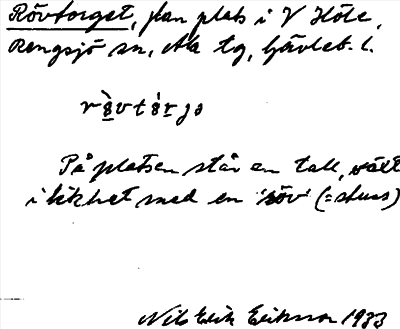 Rövtorget, plan plats i V Höle,
Rengsjö sn, Ala tg, Gävleb. l.
På platsen står en tall, växt
i likhet med en 'röv' (= stuss)
Nils Erik Eriksson 1933